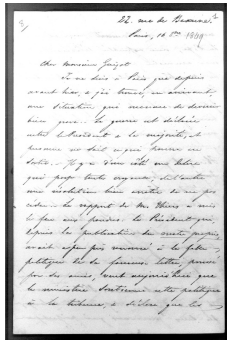 22, rue de Beaune
Paris, 16 8bre 1849
Cher Monsieur Guizot
Je ne suis à Paris que depuis
avant hier, & j'ai trouvé, en arrivant,
une situation qui menace de devenir
bien grave. La guerre est déclarée
entre le Président & la majorité, &
personne ne sait où qui pourra en
sortir. Il y a d'un côté une
qui
une résolution bien arrêtée de ne pas
céder. Le rapport de Mr Thiers a mis
le feu aux poudres. Le Président qui,
depuis la publication du motu proprio,
avait à peu près renoncé à la
politique de sa fameuse lettre, poussé
par ses amis, veut aujourd'hui que
le ministère soutienne cette politique
à la tribune, & déclare que les